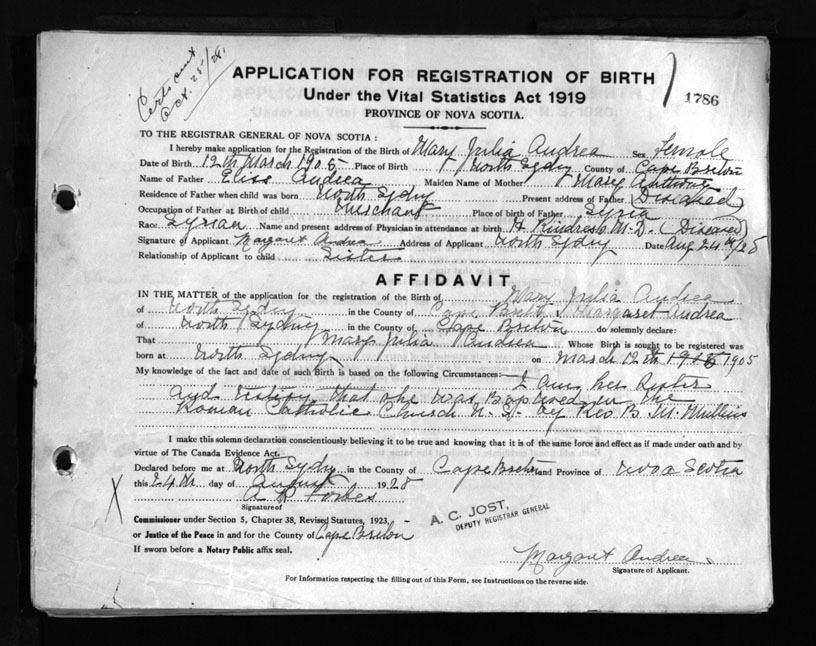 Certs sent
Oct. 25/28.
APPLICATION FOR REGISTRATION OF BIRTH
1786
Under the Vital Statistics Act 1919
PROVINCE OF NOVA SCOTIA.
TO THE REGISTRAR GENERAL OF NOVA SCOTIA:
I hereby make application for the Registration of the Birth of Mary Julia Andrea Sex Female
Date of Birth 12th March 1905 Place of Birth North Sydny County of Cape Breton
Name of Father Elias Andrea Maiden Name of Mother Mary Anthony
Residence of Father when child was born North Sydny Present address of Father (Diseased)
Occupation of Father at Birth of child Merchant Place of birth of Father Syria
Race Syrian Name and present address of Physician in attendance at birth H Kindress M.D. (Diseased)
Signature of Applicant Margaret Andrea Address of Applicant North Sydny Date Aug 24th/28
Relationship of Applicant to child Sister
AFFIDAVIT
IN THE MATTER of the application for the registration of the Birth of Mary Julia Andrea
of North Sydny in the County of Cape Breton I Margaret Andrea
of North Sydney in the County of Cape Breton do solemnly declare:
That Mary Julia Andrea Whose Birth is sought to be registered was
born at North Sydny on March 12th 1905
My knowledge of the fact and date of such Birth is based on the following Circumstances: I am her Sister
and that she was Baptized in the
Roman Catholic Church N. S. by Rev B. Mc Mullins
I make this solemn declaration conscientiously believing it to be true and knowing that it is of the same force and effect as if made under oath and by
virtue of The Canada Evidence Act.
Declared before me at North Sydny in the County of Cape Breton and Province of Nova Scotia
this 24th day of August 1928
A R Forbes
Signature of
Commissioner under Section 5, Chapter 38, Revised Statutes, 1923,
A. C. JOST,
DEPUTY REGISTRAR GENERAL
or Justice of the Peace in and for the County of Cape Breton
If sworn before a Notary Public affix seal.
Margaret Andrea
Signature of Applicant.
For Information respecting the filling out of this Form, see Instructions on the reverse side.